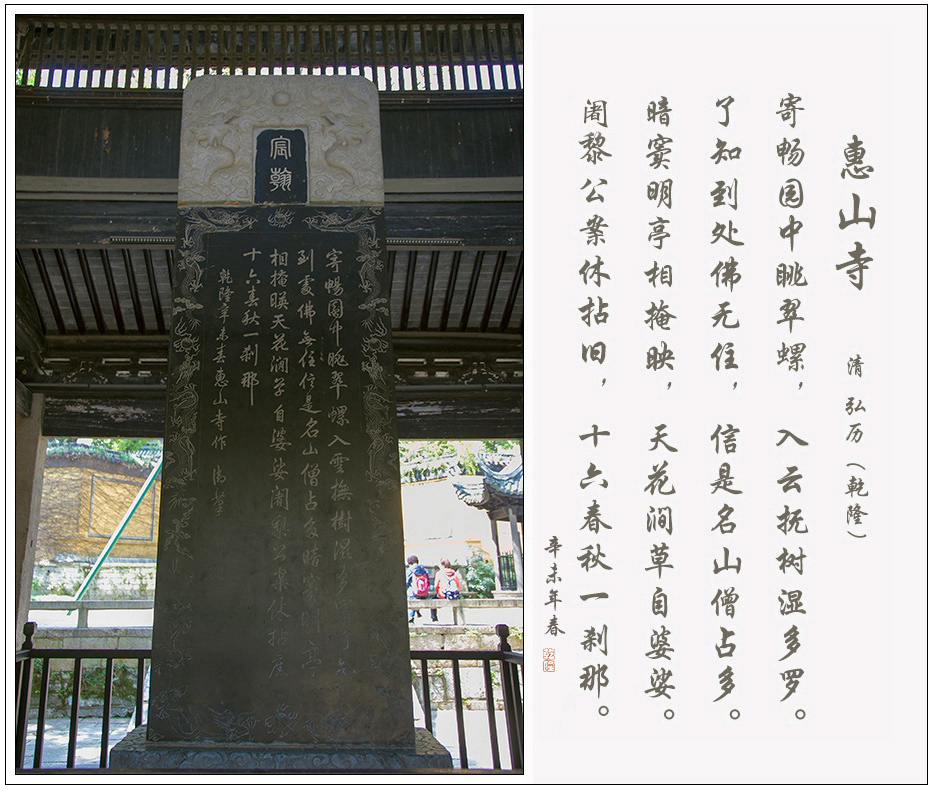 宸翰
寄暢園中眺翠螺入雲撫樹濕多羅了知
到處佛無住信是名山僧占多暗竇明亭
相掩暎天花澗草自婆娑闍黎公案休拈舊
十六春秋一刹那
乾隆辛未春惠山寺作 御筆
惠山寺 清 弘历（乾隆）
寄畅园中眺翠螺，入云抚树湿多罗。
了知到处佛无住，信是名山僧占多。
暗窦明亭相掩映，天花涧草自婆娑。
阇黎公案休拈旧，十六春秋一刹那。
辛未年春